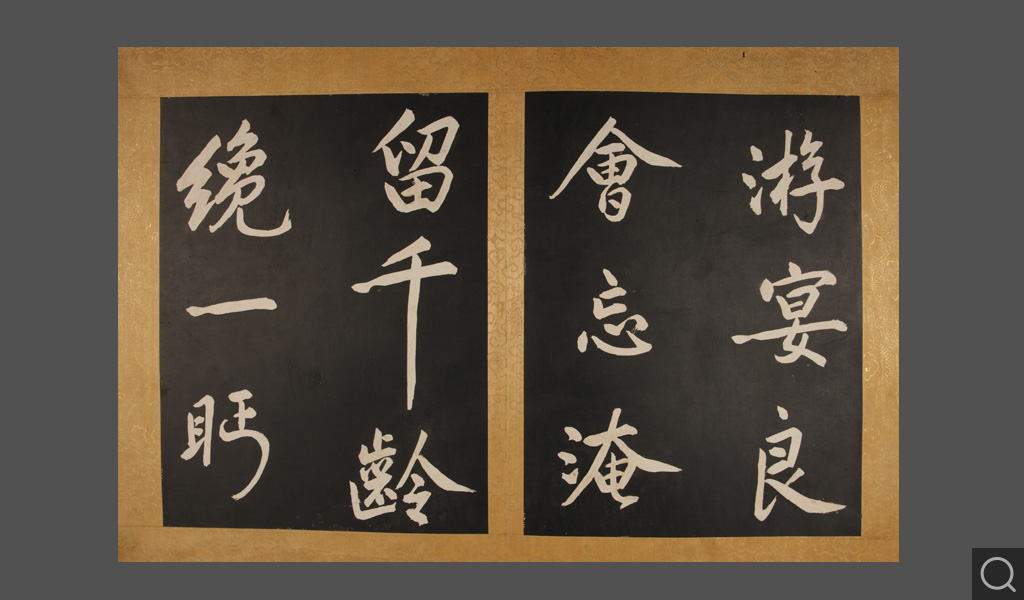 游宴良
會忘淹
留千齡
纔一眄